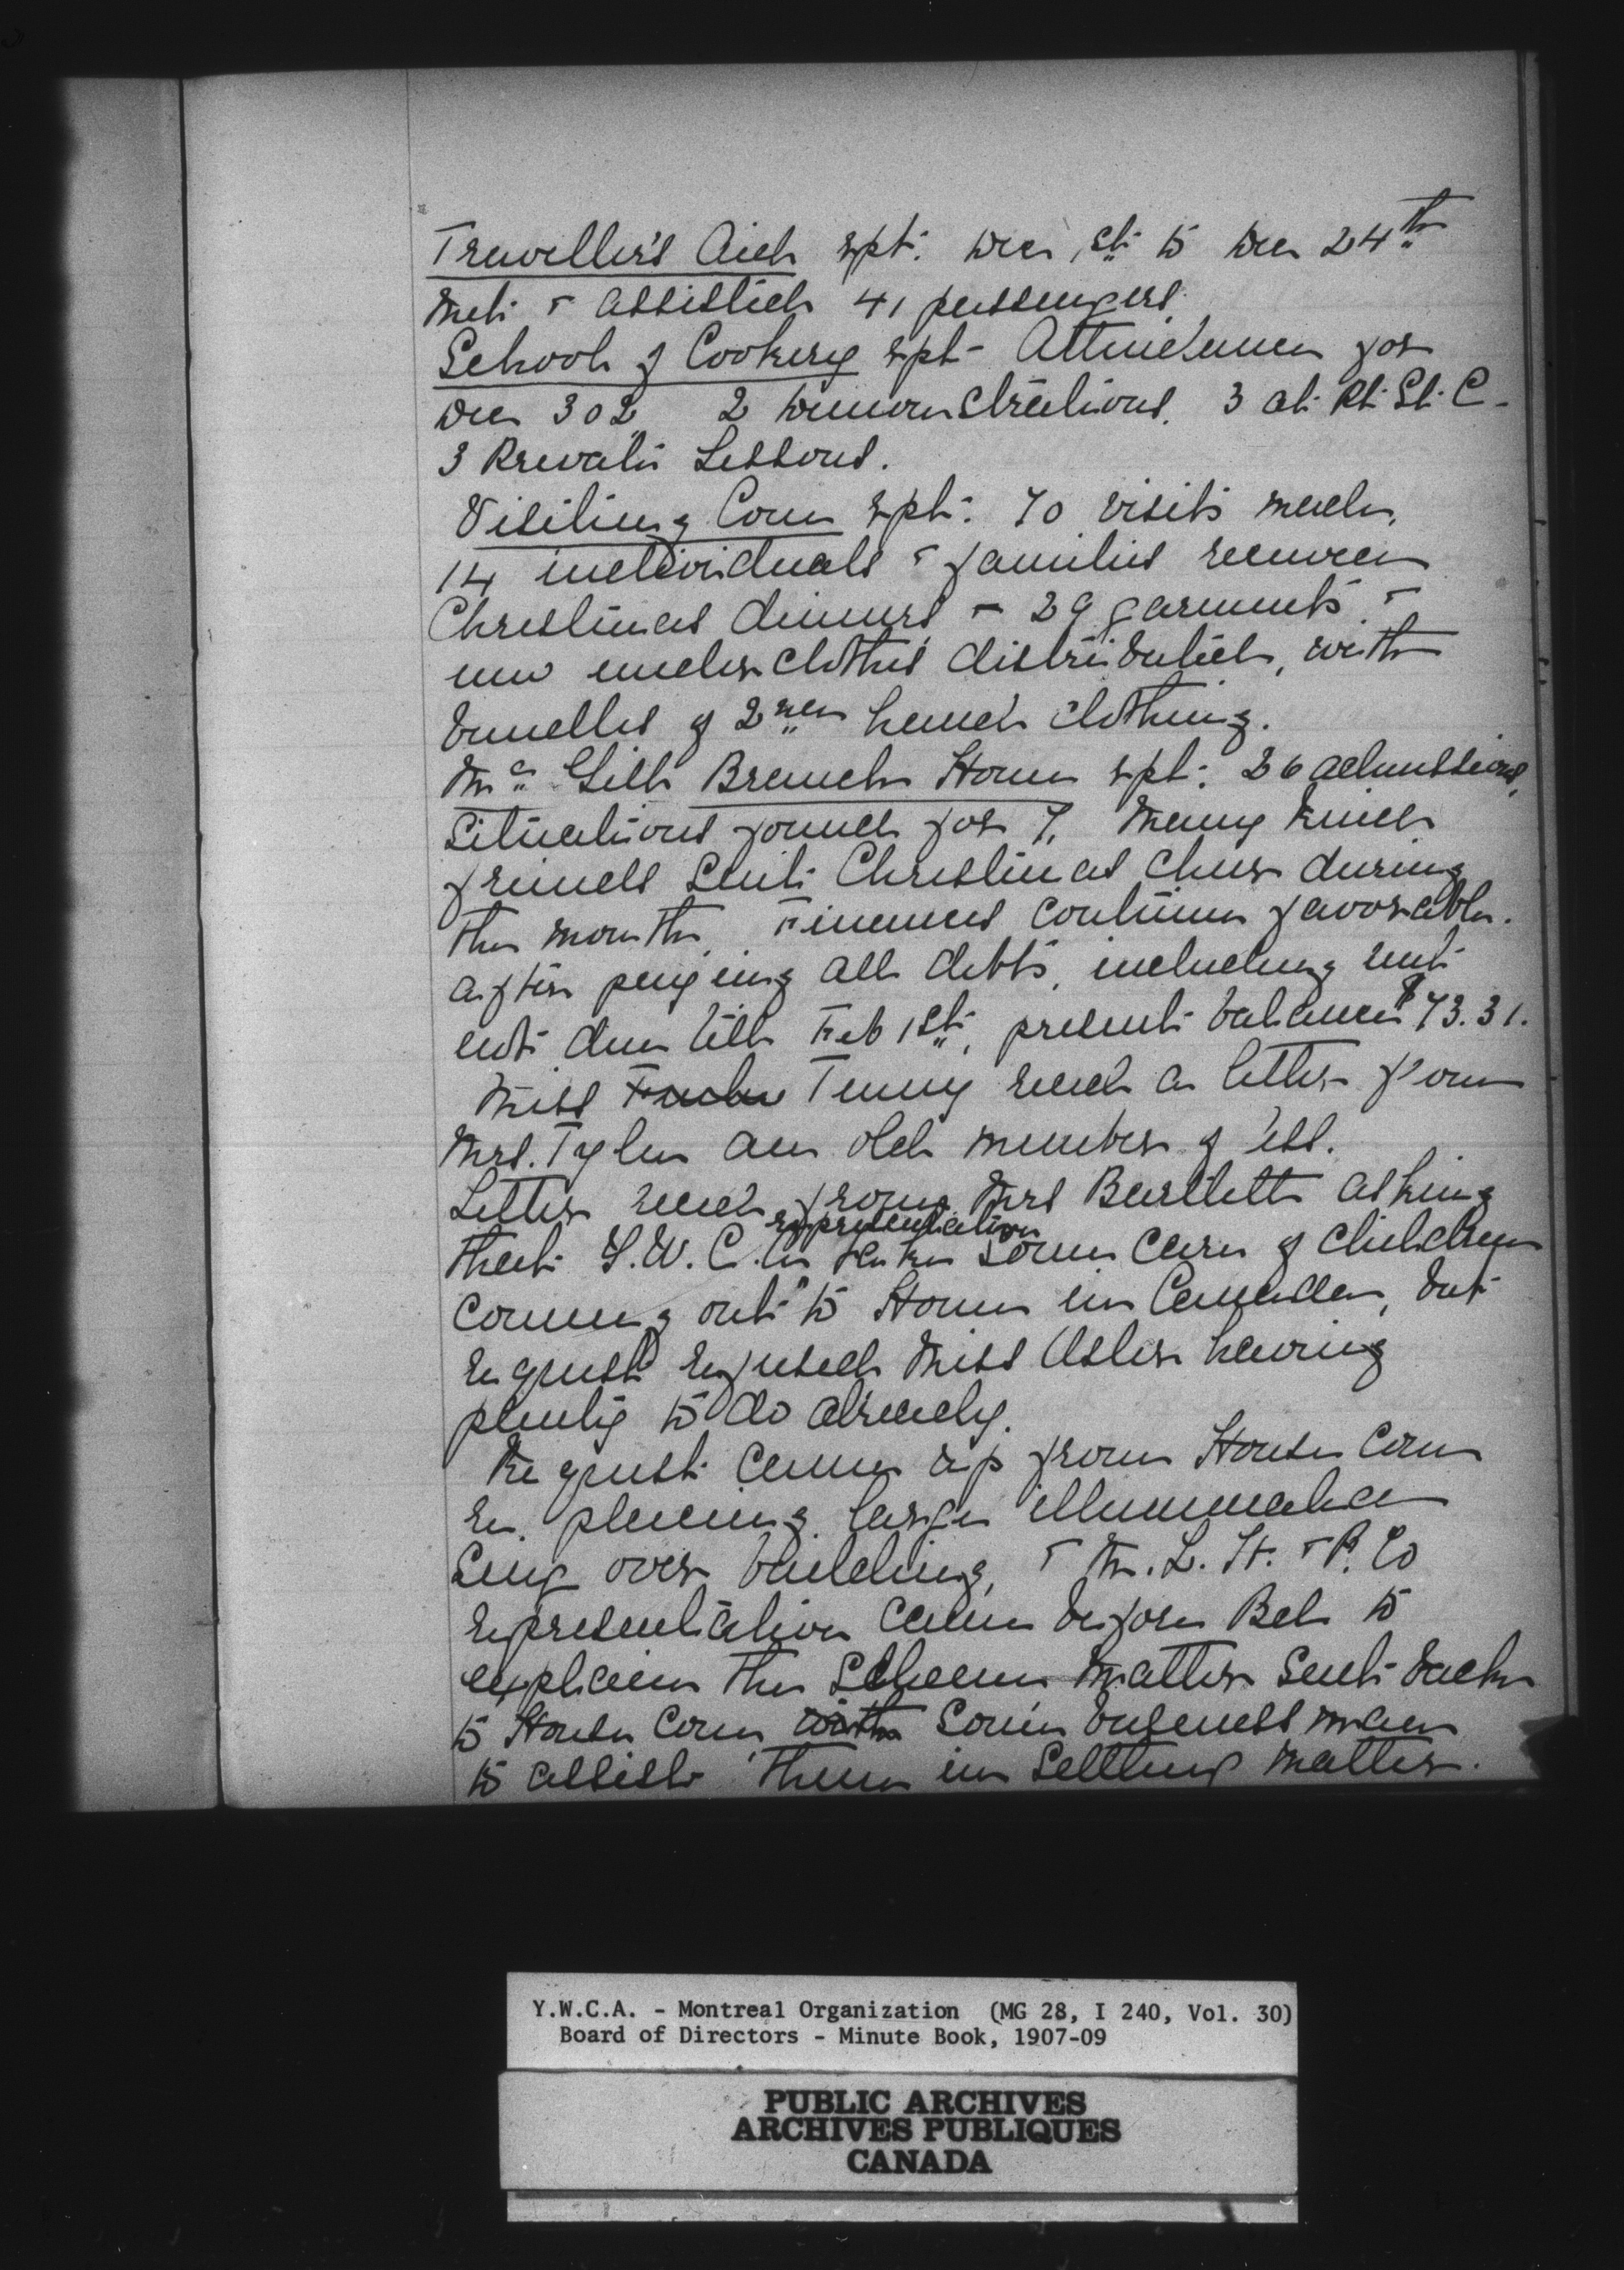 Traveller's Aid rpt. Dec 1st to Dec 24th
Met & assisted 41 passengers.
School of Cookery rpt - Attendance for
Dec 302, 2 demonstrations, 3 at Pt. St. C -
3 Private Lessons.
Visiting Com rpt: 70 visits made,
14 individuals & families received
Christmas dinners - 29 garments &
new underclothes distributed, with
bundles of 2nd hand clothing.
McGill Branch Home rpt: 26 admissions,
situations found for 7, Many kind
friends sent Christmas cheer during
the month, Finances continue favorable.
after paying all debts, including rent
not due till Feb 1st, present balance $73.31.
Miss Tenny read a letter from
Mrs. Tyler an old member of ess.
Letter read from Mrs Bartlett asking
representative
that Y.W.C.A take some care of children
coming out to Home in Canada, but
request refused Miss Osler having
plenty to do already.
Request came up from House Com
re. placing large illuminated
sing over building, & M. L. H. & P. Co
representative came before Bd to
explain the scheme Matter sent back
to House Com, with some business man
to assist them in settling matter.
Y.W.C.A. - Montreal Organization (MG 28, I 240, Vol. 30)
Board of Directors - Minute Book, 1907-09
PUBLIC ARCHIVES
ARCHIVES PUBLIQUES
CANADA